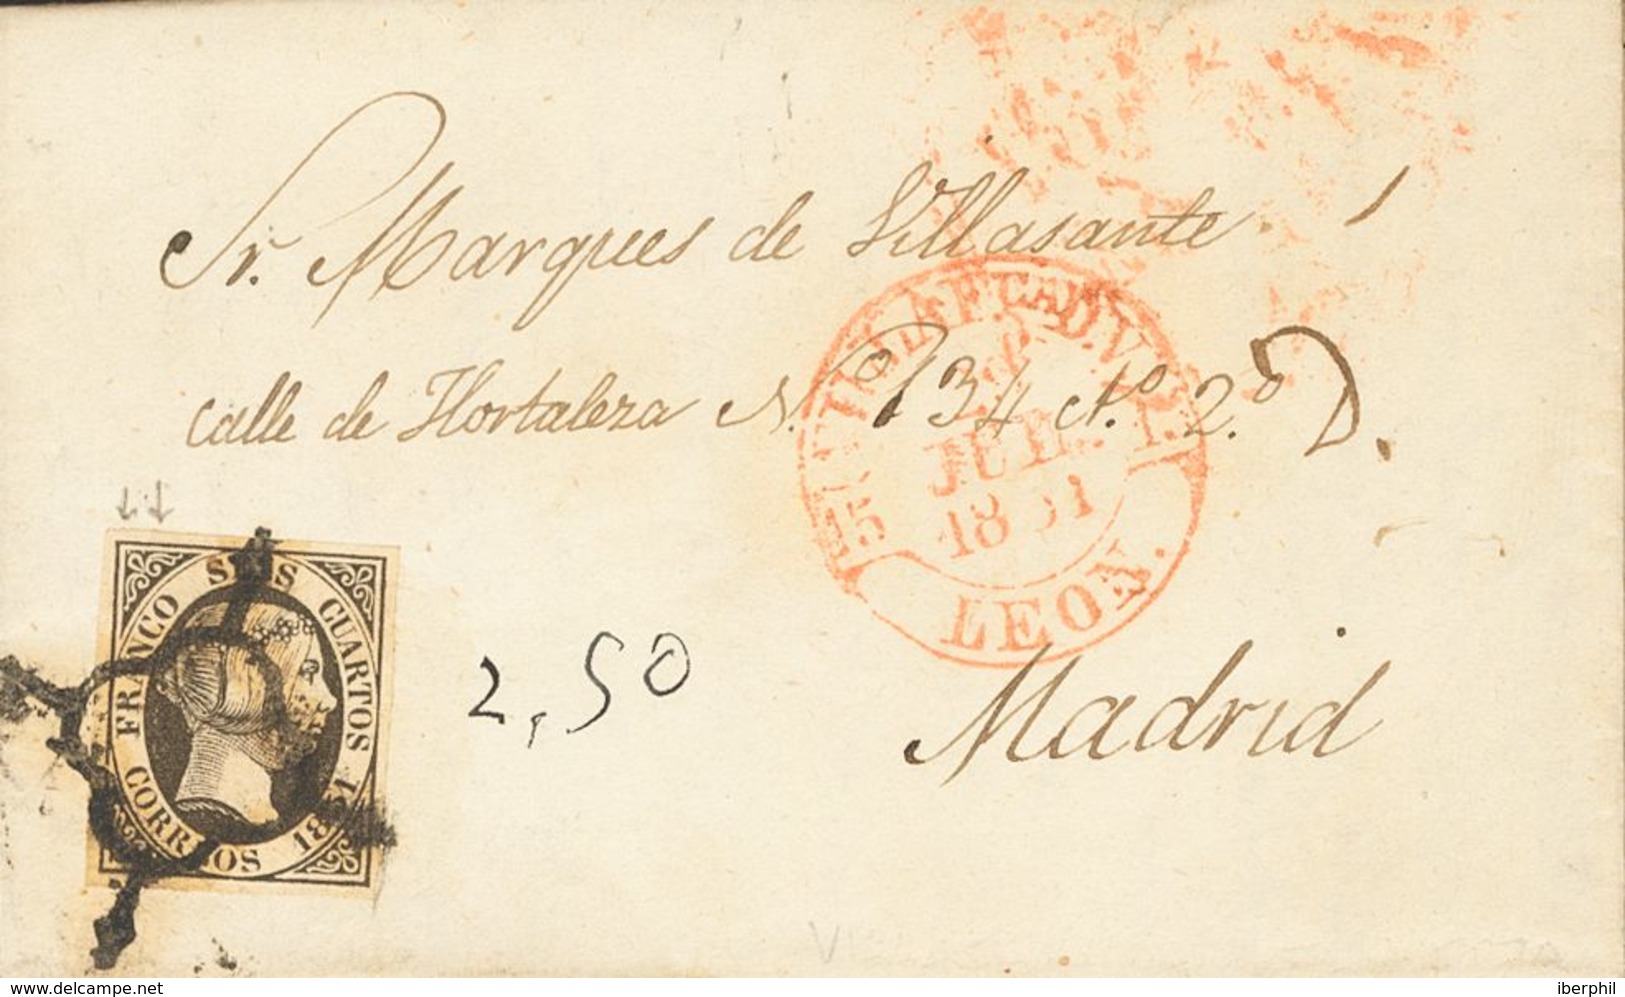 Sr. Marques de Villasante
calle de Hortaleza N. 34 cto. 2.º D.
Madrid
2,50
FRANCO SEIS CUARTOS
CORREOS 1851
VILLAFCA D. V.
JUL.
1851
LEON.
delcampe.net
iberphil